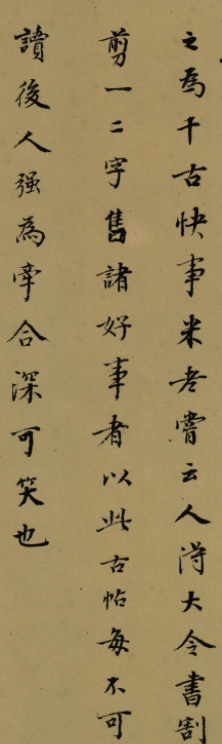 之為千古快事米老嘗云人得大令書割
剪一二字售諸好事者以此古帖每不可
讀後人强為牵合深可笑也